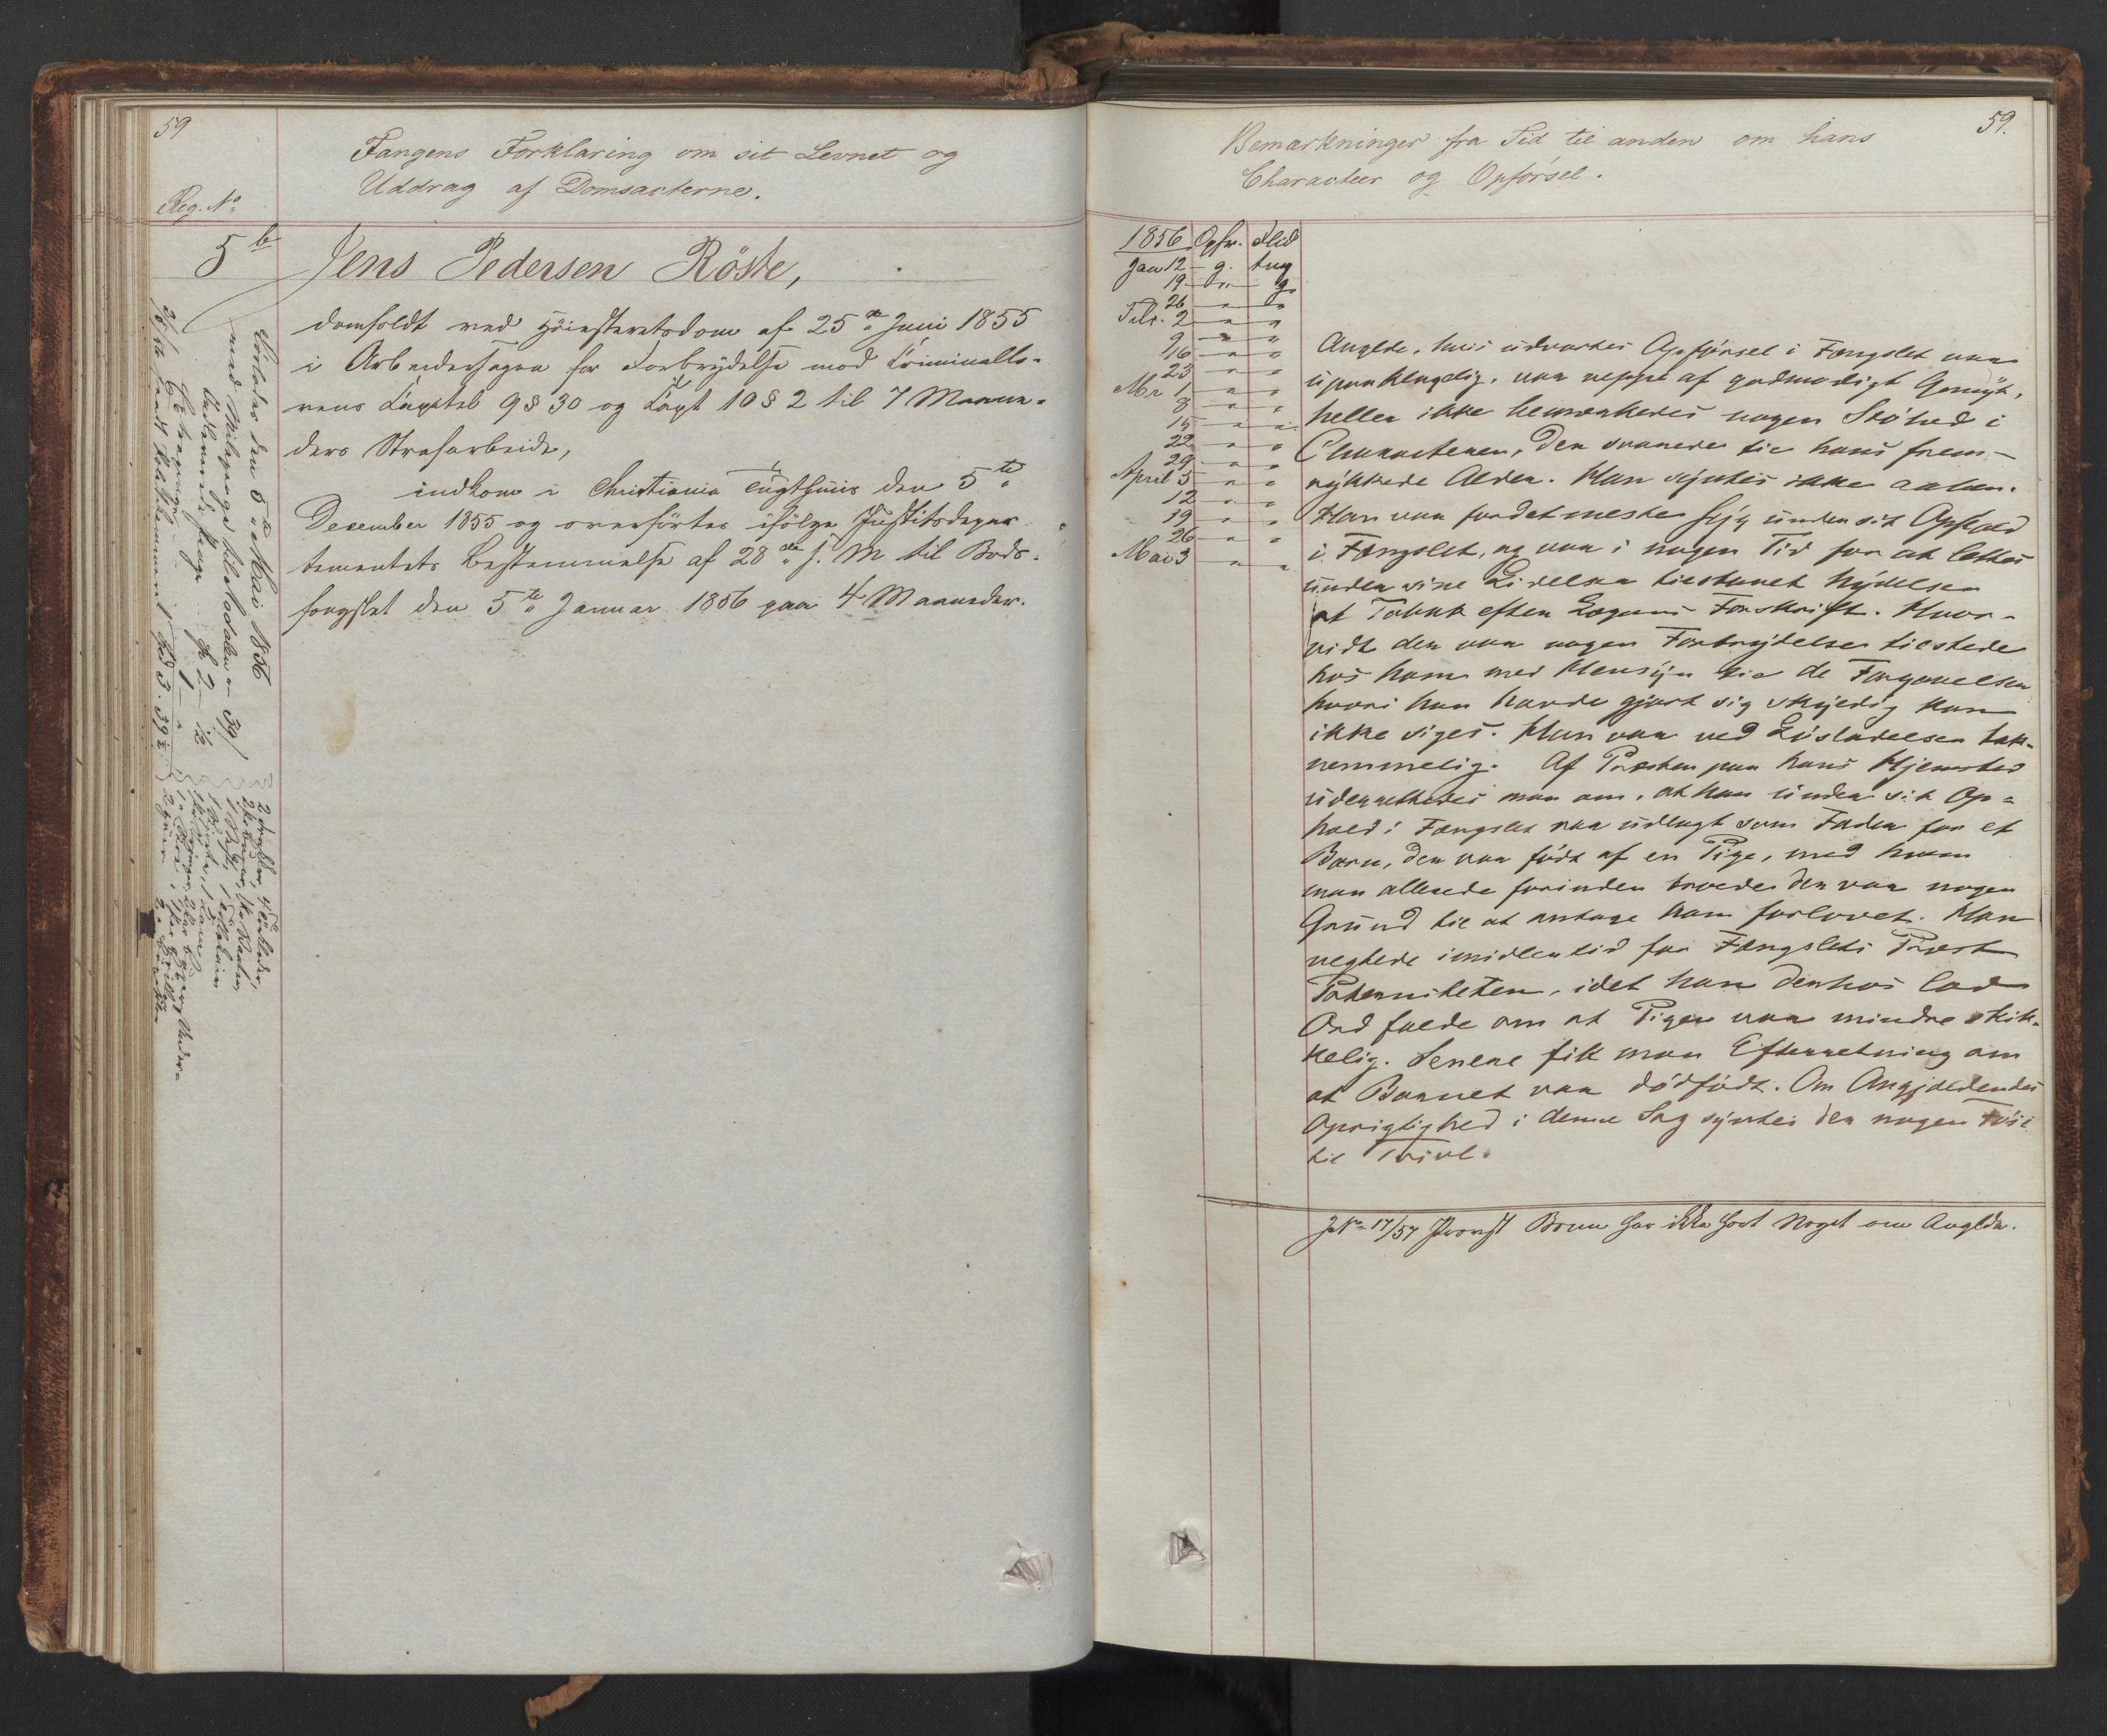 59
Fangens Forklaring om sit Levnet og
Uddrag af Domsacterne.
Reg. No
5 b
Jens Pedersen Röste,
domfældt ved Høiesteretsdom af 25de Juni 1855
i Arbeidersagen for Forbrydelse mod Criminallo-
vens Capitel 9 § 30 og Capt 10 § 2 til 7 Maane-
ders Strafarbeide,
indkom i Christiania Tugthuus den 5te
December 1855 og overførtes ifølge Justitsdepar
tementets Bestemmelse af 28de s. M til Bods-
fængslet den 5te Januar 1856 paa 4 Maaneder.
Løslades den 5te Mai 1856
59.
Bemærkninger fra Tid til anden om hans
Characteer og Opförsel.
1856 Opfør. Flid
Jan 12 - g. tmg
19 - do - g
26 " do
Febr. 2 " "
9 " "
16 " "
23 " "
Mr 1 " "
8 " "
15 " "
22 " "
29 " "
April 5 " "
12 " "
19 " "
26 " "
Mai 3 " "
Anglde, hvis udvortes Opførsel i Fængslet var
upaaklagelig, var neppe af godmodigt Gemyt,
heller ikke bemærkedes nogen Støhed i
Characteren, der svarede til hans frem-
rykkede Alder. Han syntes ikke
Han var fordetmeste syg under sit Ophold
i Fængslet, og var i nogen Tid for at lettes
under sine Lidelser tilstaaet Nydelsen
af Tobak efter Lægens Forskrift. Hvor-
vidt der var nogen Fortrydelse tilstede
hos ham med Hensyn til de Forgaaelser
hvori han havde gjort sig skyldig kan
ikke siges. Han var ved Løsladelsen tak-
nemmelig. Af Præsten paa hans Hjemsted
underrettedes man om, at han under sit Op-
hold i Fængslet var udlagt som Fader for et
Barn, der var født af en Pige, med hvem
man allerede forinden troede der var nogen
Grund til at antage ham forlovet. Han
negtede imidlertid for Fængslets Præst
Paterniteten, idet han derhos lod
Ord falde om at Pigen var mindre skik-
kelig. Senere fik man Efterretning om
at Barnet var dødfødt. Om Angjældendes
Oprigtighed i denne Sag syntes der nogen Føie
til Tvivl.
JNo 17/57 Provst Brun har ikke hørt Noget om Anglde.